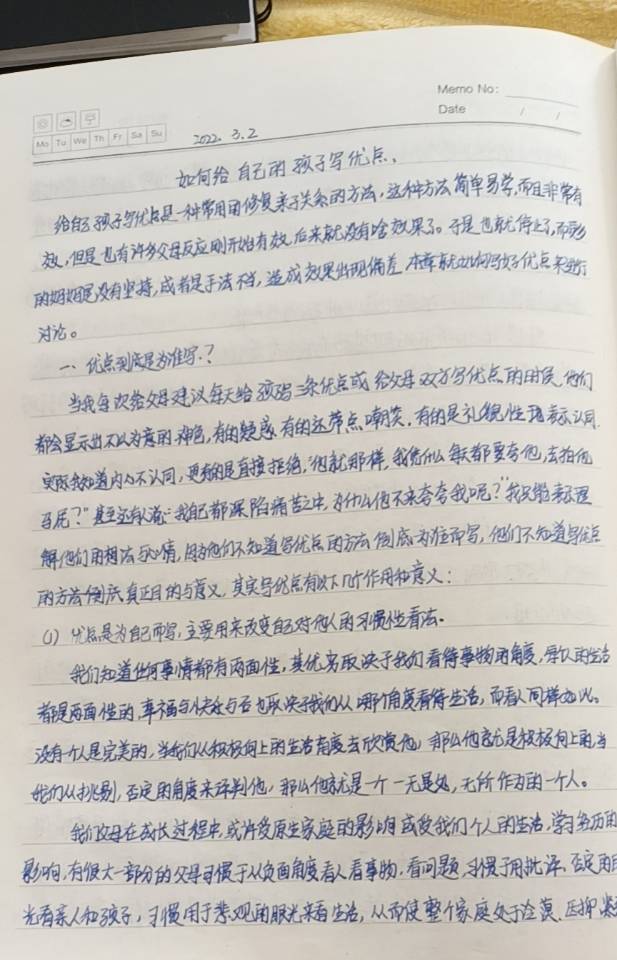 Memo No:
Date / /
Mo Tu We Th Fr Sa Su
2022. 3.2
如何给自己的孩子写优点、
给自己孩子写优点是一种常用的修复亲子关系的方法,这种方法简单易学,而且非常有
效,但是也有许多父母反应刚开始有效,后来就没有啥效果了。于是也就停止了,而影
的 是没有坚持,或者是手法不当,造成效果出现偏差,本章就如何写好优点来进行
讨论。
一、优点到底是为谁写?
当我每次给父母建议每天给孩子写三条优点或给父母双方写优点的时候,他们
都会显示出不以为意的神色,有的疑惑,有的还带点嘲笑,有的是礼貌性地表示认同,
实际我知道内心不认同,更有的是直接拒绝,"他就那样,我凭什么每天都要夸他,去拍他
马屁?"甚至还有人说:"我自己都深陷痛苦之中,为什么他不来夸夸我呢?"我只能表示理
解他们的想法与心情,因为他们不知道写优点的方法倒底为谁而写,他们不知道写优点
的方法倒底真正目的与意义,其实写优点有以下几个作用和意义:
(1) 优点是为自己而写,主要用来改变自己对他人的习惯性看法.
我们知道任何事情都有两面性,其优劣取决于我们看待事物的角度,每个人的生活
都是两面性的,幸福与快乐与否也取决于我们从哪个角度看待生活,而看人同样如此。
没有一个人是完美的,当我们从积极向上的生活角度去欣赏他,那么他就是积极向上的,当
我们从挑剔,否定的角度来评判他,那么他就是一个一无是处,无所作为的一个人。
我们父母在成长过程中,或许受原生家庭的影响或受我们个人的生活,学习经历的
影响,有很大一部分的父母习惯于从负面角度看人看事物,看问题,习惯于用批评、否定的目
光看亲人和孩子,习惯用于悲观的眼光来看生活,从而使整个家庭处于冷漠、压抑